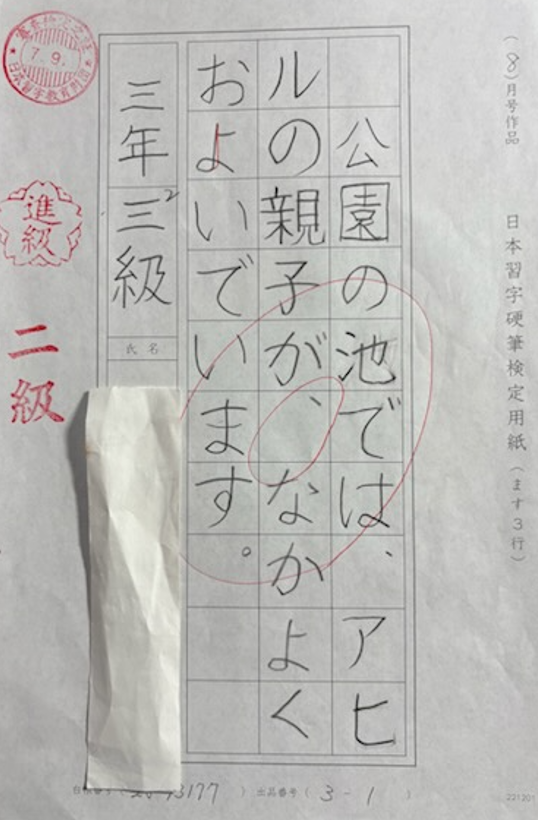 （8）月号作品
日本習字硬筆検定用紙（ます３行）
公園の池では、アヒ
ルの親子が、なかよく
およいでいます。
三年 三級
2
氏名
7.9.
日本習字教育財団
進級
二級
出品番号（3-1）
221201